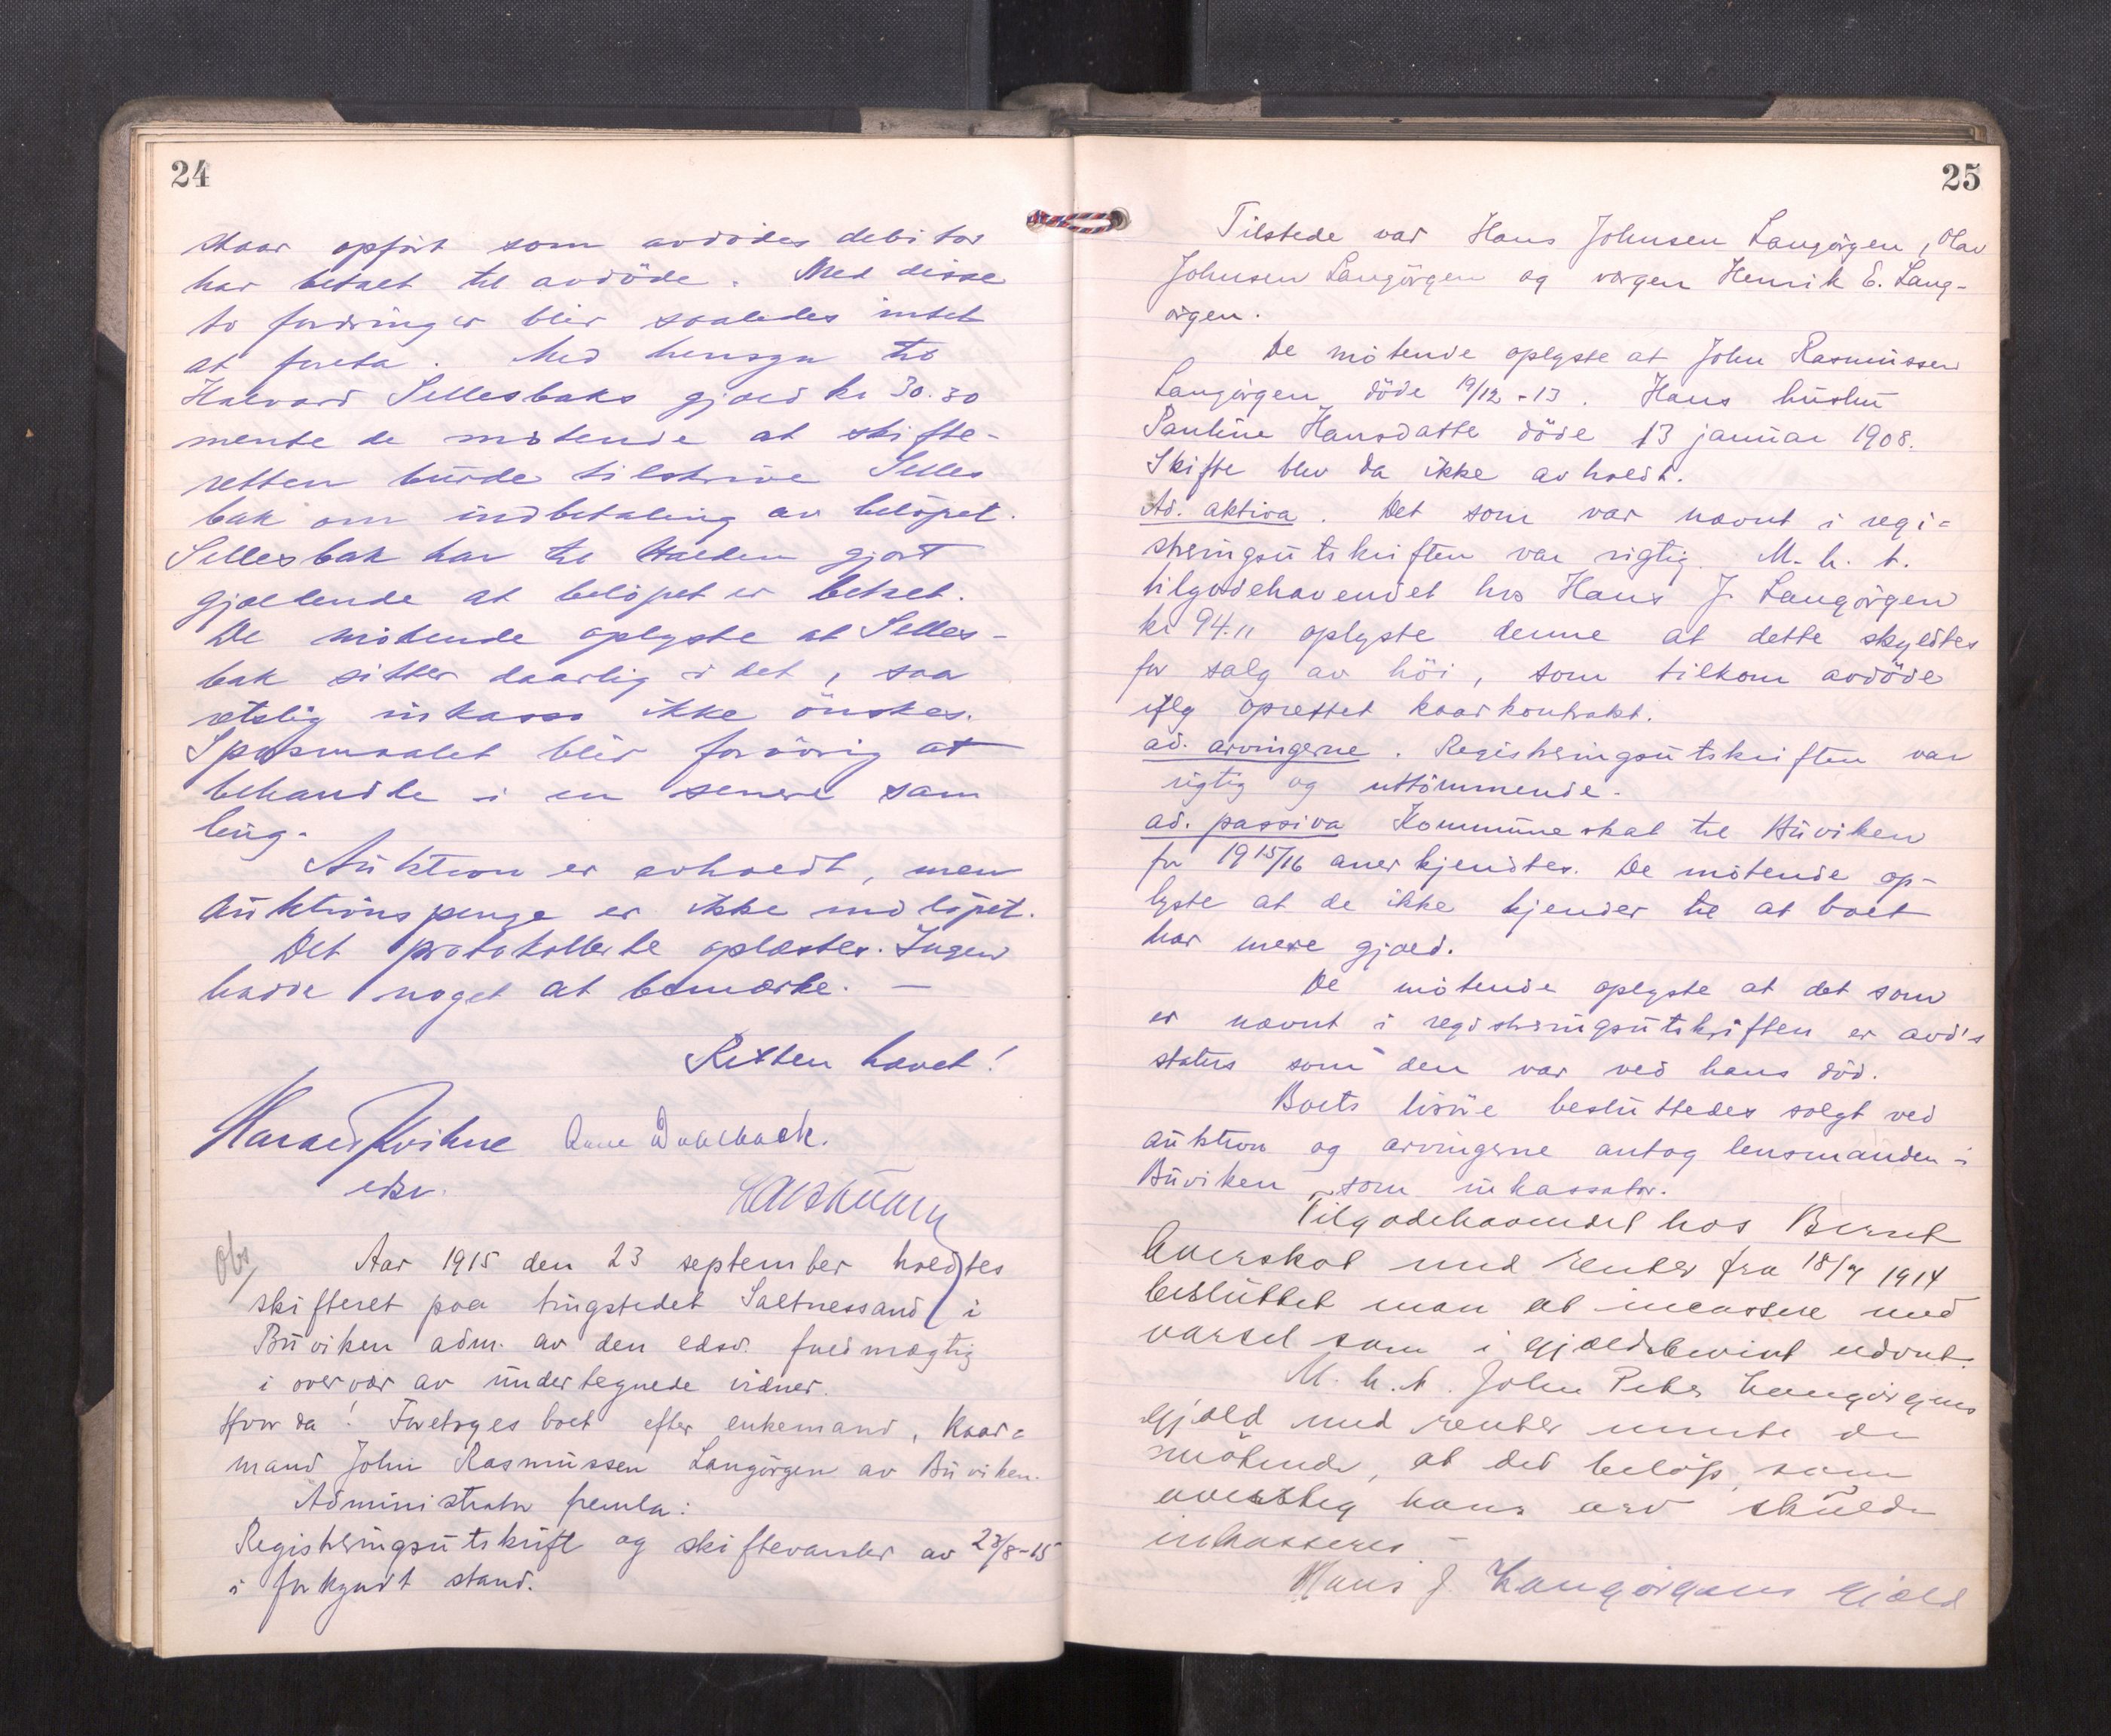 24
staar opført som avdødes debitor
har betalt til avdöde. Med disse
to fordringer blir saaledes intet
at foreta. Med hensyn til
Halvard Sellesbaks gjæld kr 30.30
mente de mötende at skifte-
retten burde tilskrive Selles
bak om indbetaling av belöpet.
Sellesbak har til Halden gjort
gjældende at belöpet er betalt.
De mötende oplyste at Selles-
bak sitter daarlig i det, saa
retslig inkasso ikke önskes.
Spörsmaalet blir forövrig at
behandle i en senere sam
ling.
Auktion er avholdt, men
auktionspenge er ikke indlöpet.
Det protokollerte oplæstes. Ingen
hadde noget at bemerke. —
Retten hævet!
edsv.
Obs/
Aar 1915 den 23 september holdtes
skifteret paa tingstedet Saltnessand i
Buviken adm. av den edsv. fuldmægtig
i overvær av undertegnede vidner.
Hvorda! Foretoges boet efter enkemand, kaar=
mand John Rasmussen Langörgen av Buviken.
Administrator fremla:
Registreringsutskrift og skiftevarsler av 23/8-15
i forkyndt stand.
25
Tilstede var Hans Johnsen Langörgen, Olav
Johnsen Langörgen og vergen Henrik E. Lang-
örgen.
De mötende oplyste at John Rasmussen
Langörgen döde 19/12-13. Hans hustru
Pauline Hansdatte döde 13 januar 1908.
Skifte blev da ikke avholdt.
Ad. aktiva. Det som var nævnt i regi=
streringsutskriften var rigtig. M. h. t.
tilgodehavendet hos Hans J. Langörgen
kr 94.11 oplyste denne at dette skyldtes
for salg av höi, som tilkom avdöde
iflg oprettet kaarkontrakt.
ad. arvingerne. Registreringsutskriften var
rigtig og uttömmende.
ad. passiva Kommuneskat til Buviken
for 1915/16 anerkjendtes. De mötende op-
lyste at de ikke kjender til at boet
har mere gjæld.
De mötende oplyste at det som
er nævnt i registreringsutskriften er avd's
status som den var ved hans död.
Boets lösöre besluttedes solgt ved
auktion og arvingerne antog lensmanden i
Buviken som inkassator.
Tilgodehavendet hos Bernt
Saverskol med renter fra 18/4 1914
besluttet man at incassere med
varsel som i gjældsbevist nævnt.
M. h. t. John Peter Langörgens
gjæld med renter mente de
mötende, at det belöp, som
oversteg hans arv skulde
inkasseres —
Hans J. Langörgens gjæld